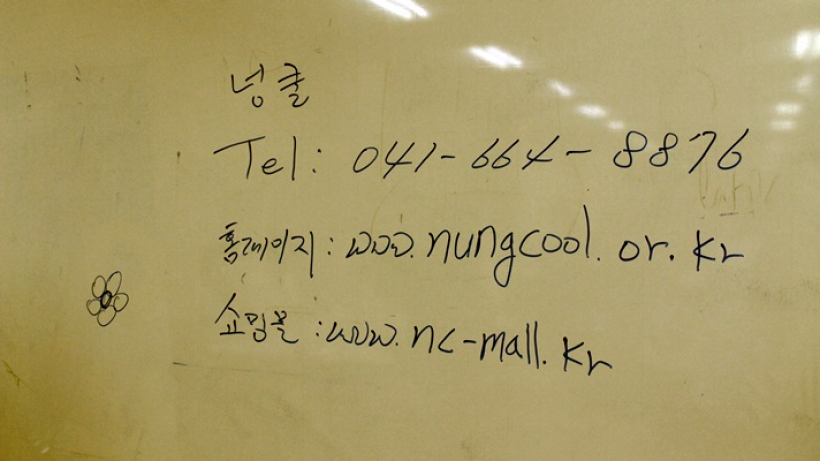 넝쿨
Tel: 041-664-8876
홈페이지: www.nungcool.or.kr
쇼핑몰: www.nc-mall.kr